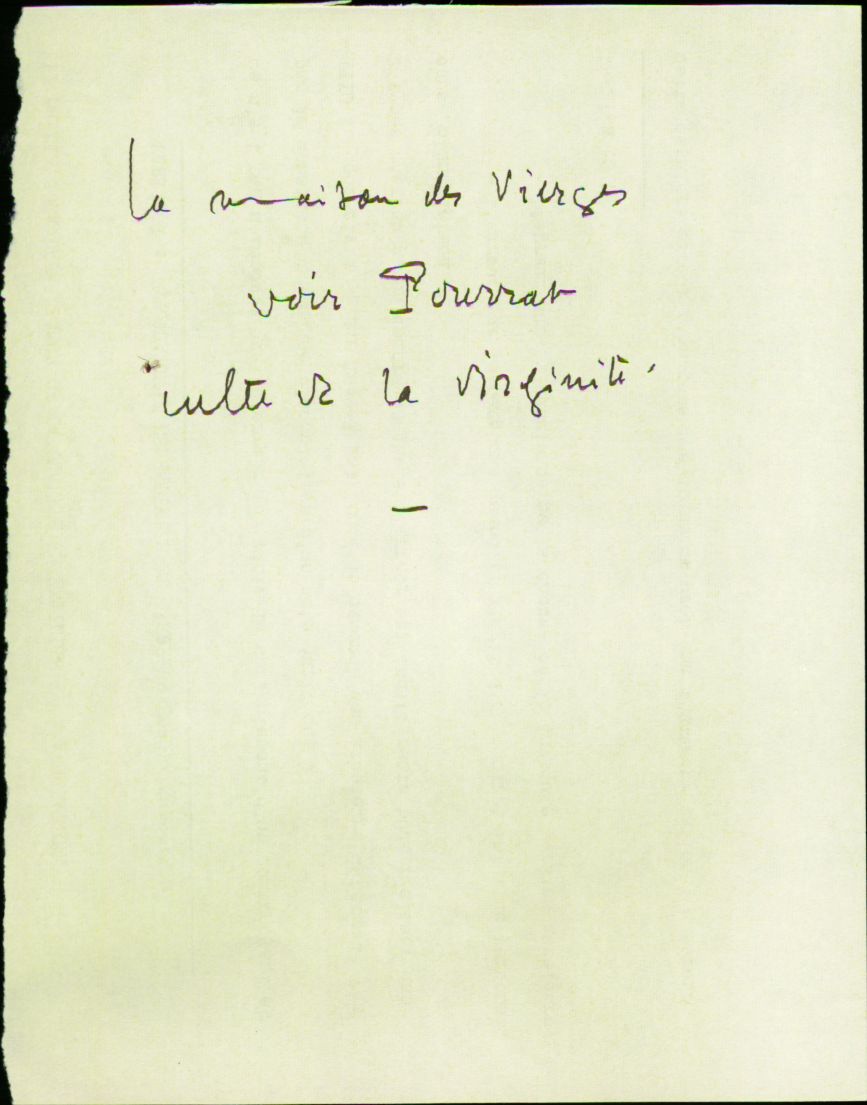 la maison des Vierges
voir Pourrat
culte de la virginité.
—